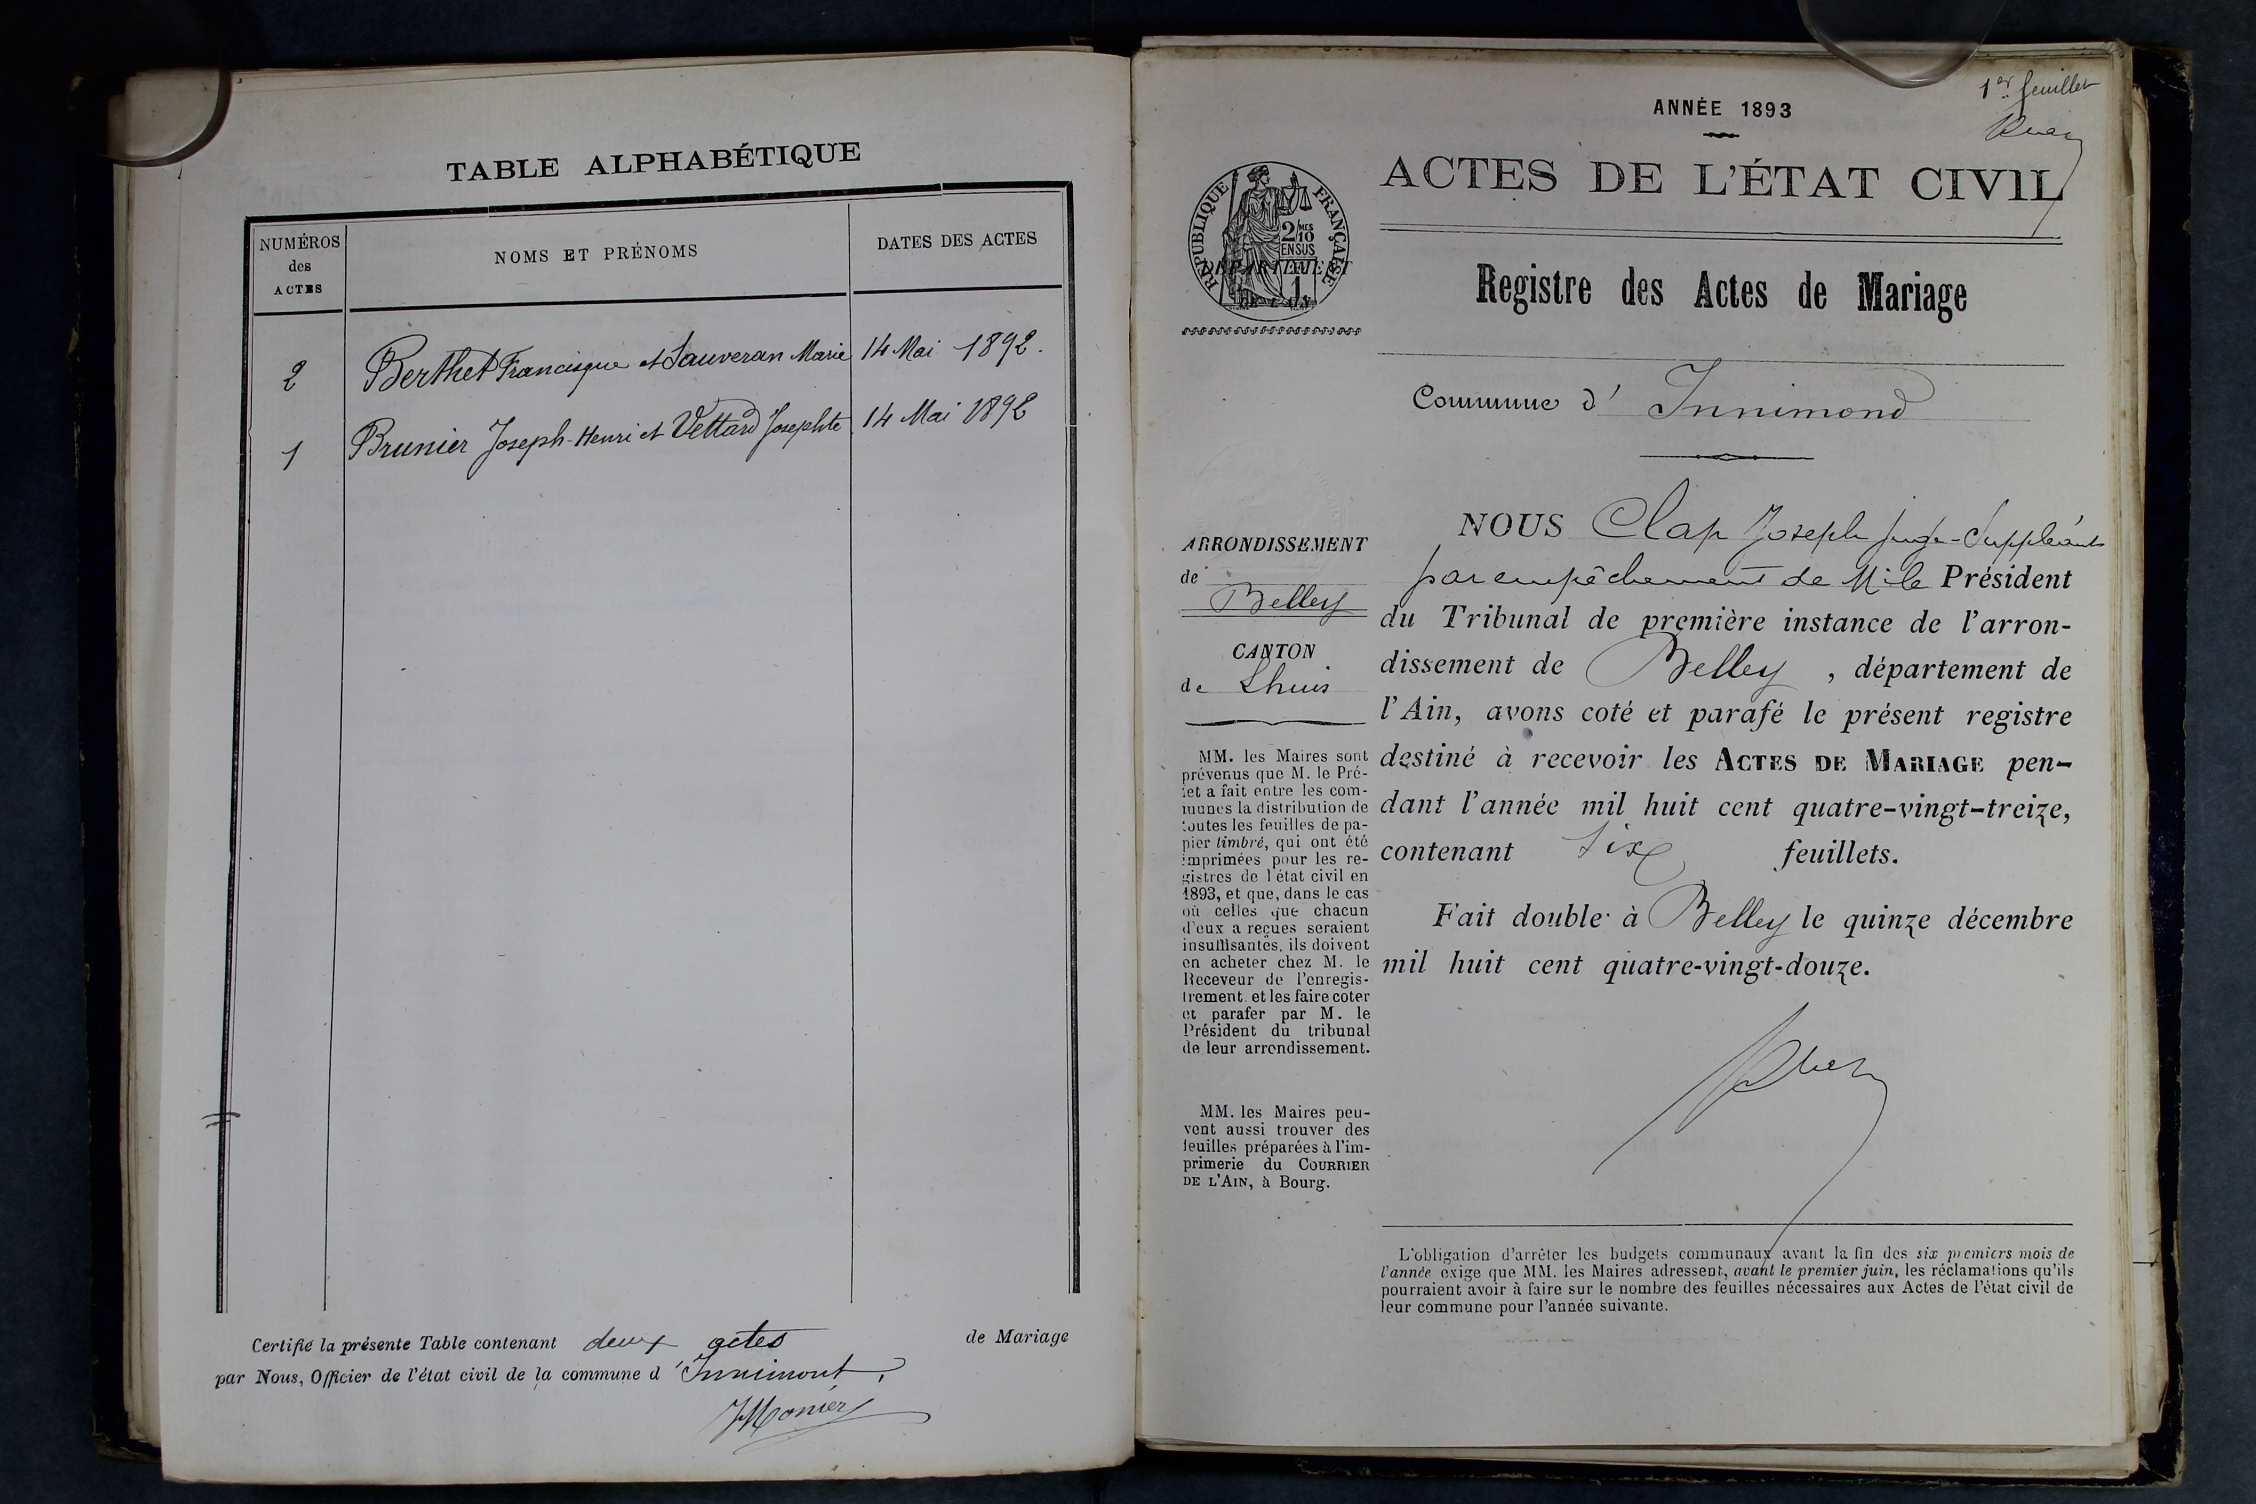 TABLE ALPHABÉTIQUE
NUMÉROS
des
ACTES
NOMS ET PRÉNOMS
DATES DES ACTES
2 Berthet Francisque et Sauveran Marie 14 Mai 1892.
1 Brunier Joseph-Henri et Vettard Josephte 14 Mai 1892
Certifié la présente Table contenant deux actes de Mariage
par Nous, Officier de l'état civil de la commune d'Innimont,
JMonier
1er feuillet
ANNÉE 1893
ACTES DE L'ÉTAT CIVIL
RÉPUBLIQUE FRANÇAISE
2/10
MES
EN SUS
DÉPARTEMENT
DE L'AIN
Registre des Actes de Mariage
Commune d'Innimond
ARRONDISSEMENT
de
Belley
CANTON
de Lhuis
MM. les Maires sont
prévenus que M. le Pré-
fet a fait entre les com-
munes la distribution de
toutes les feuilles de pa-
pier timbré, qui ont été
imprimées pour les re-
gistres de l'état civil en
1893, et que, dans le cas
où celles que chacun
d'eux a reçues seraient
insuffisantes, ils doivent
en acheter chez M. le
Receveur de l'enregis-
trement et les faire coter
et parafer par M. le
Président du tribunal
de leur arrondissement.
MM. les Maires peu-
vent aussi trouver des
feuilles préparées à l'im-
primerie du COURRIER
DE L'AIN, à Bourg.
NOUS Clap Joseph Juge-Suppléant
par empêchement de M. le Président
du Tribunal de première instance de l'arron-
dissement de Belley, département de
l'Ain, avons coté et parafé le présent registre
destiné à recevoir les ACTES DE MARIAGE pen-
dant l'année mil huit cent quatre-vingt-treize,
contenant six feuillets.
Fait double à Belley le quinze décembre
mil huit cent quatre-vingt-douze.
L'obligation d'arrêter les budgets communaux avant la fin des six premiers mois de
l'année exige que MM. les Maires adressent, avant le premier juin, les réclamations qu'ils
pourraient avoir à faire sur le nombre des feuilles nécessaires aux Actes de l'état civil de
leur commune pour l'année suivante.